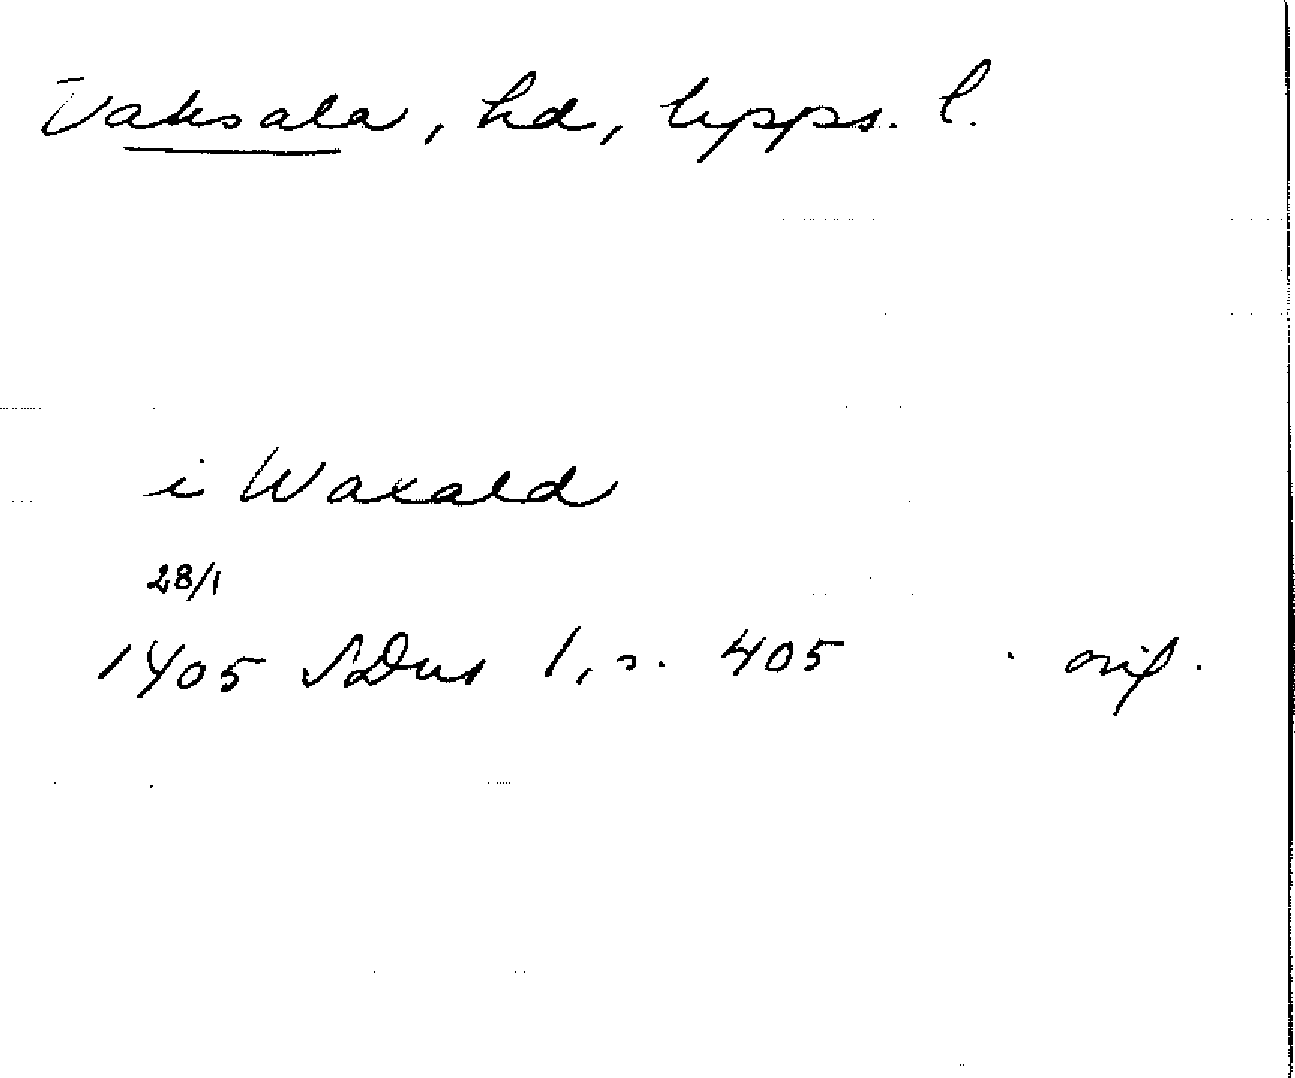 Vaksala, hd, Upps. l.
i Waxald
28/1
1405 SDns 1, s. 405 orig.